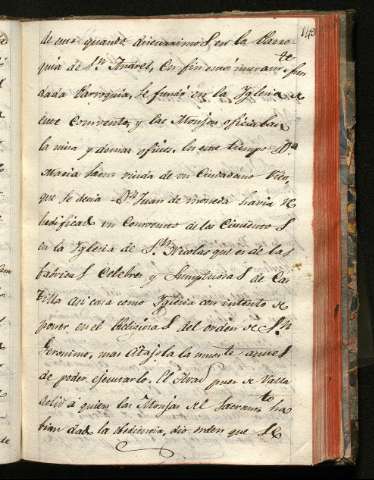 143
de que quando dixeramos, en la Parro
quia de Sn Andres, Confirmó
dada Parroquia, se fundó en la Yglesia de
este Convento, y las Monjas oficiaban
la misa y demas oficios, en este tiempo Da
Maria Saenz viuda de un Ciudadano Rico,
que se decia Dn Juan de moneda havia re
hedificado un Convento de los Cimientos
en la Yglesia de Sn Nicolas que es de las
fabricas Celebres y Sumptuosas de Cas
tilla asi casa como Yglesia con intento de
poner en el Religiosas del orden de Sn
Geronimo, mas atajola la muerte antes
de poder ejecutarlo. El Abad pues de Valla
dolid á quien las Monjas del Sacramto ha
bian dado la obediencia, dio orden que se